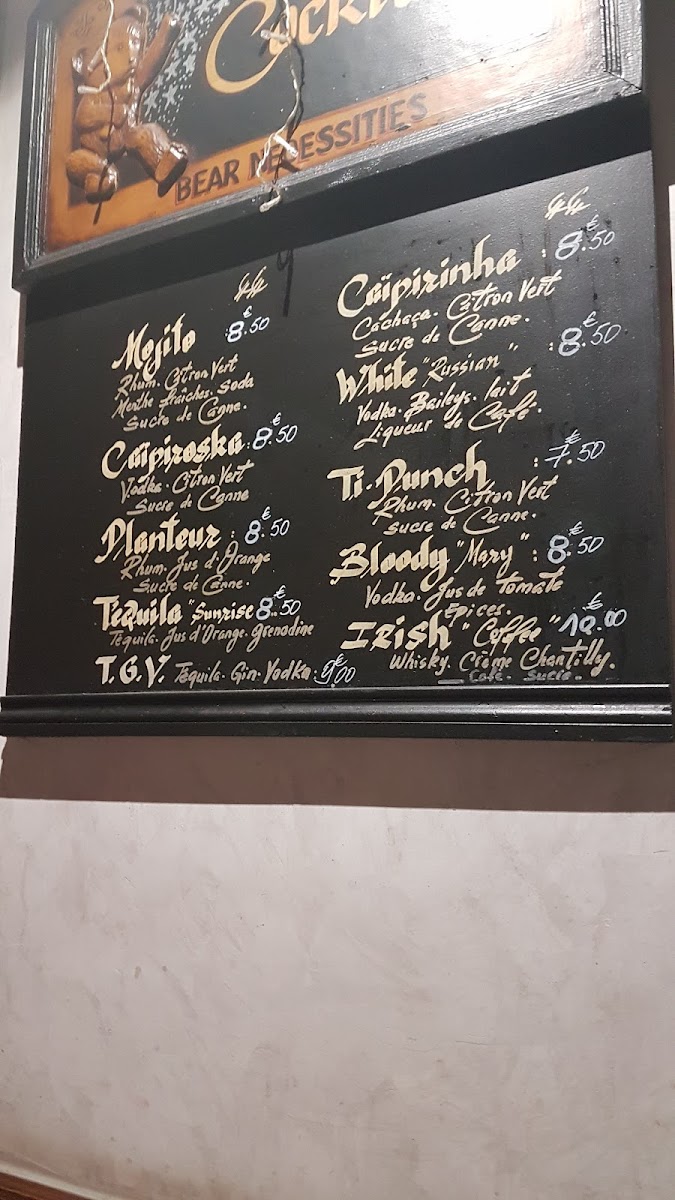 Cockt
BEAR NECESSITIES
Mojito : 8.50€
Rhum. Citron Vert
Menthe fraîches. Soda
Sucre de Canne.
Caïpiroska : 8.50€
Vodka. Citron Vert
Sucre de Canne
Planteur : 8.50€
Rhum. Jus d'Orange
Sucre de Canne.
Tequila "Sunrise 8.50€
Tequila. Jus d'Orange. Grenadine
T.G.V. Tequila. Gin. Vodka : 9.00€
Caïpirinha : 8.50€
Cachaça. Citron Vert
Sucre de Canne.
White "Russian" : 8.50€
Vodka. Baileys. lait
Liqueur de Café.
Ti. Punch : 7.50€
Rhum. Citron Vert
Sucre de Canne.
Bloody "Mary" : 8.50€
Vodka. Jus de Tomate
Epices.
Irish "Coffee" 10.00€
Whisky. Crème Chantilly.
Café. Sucre.